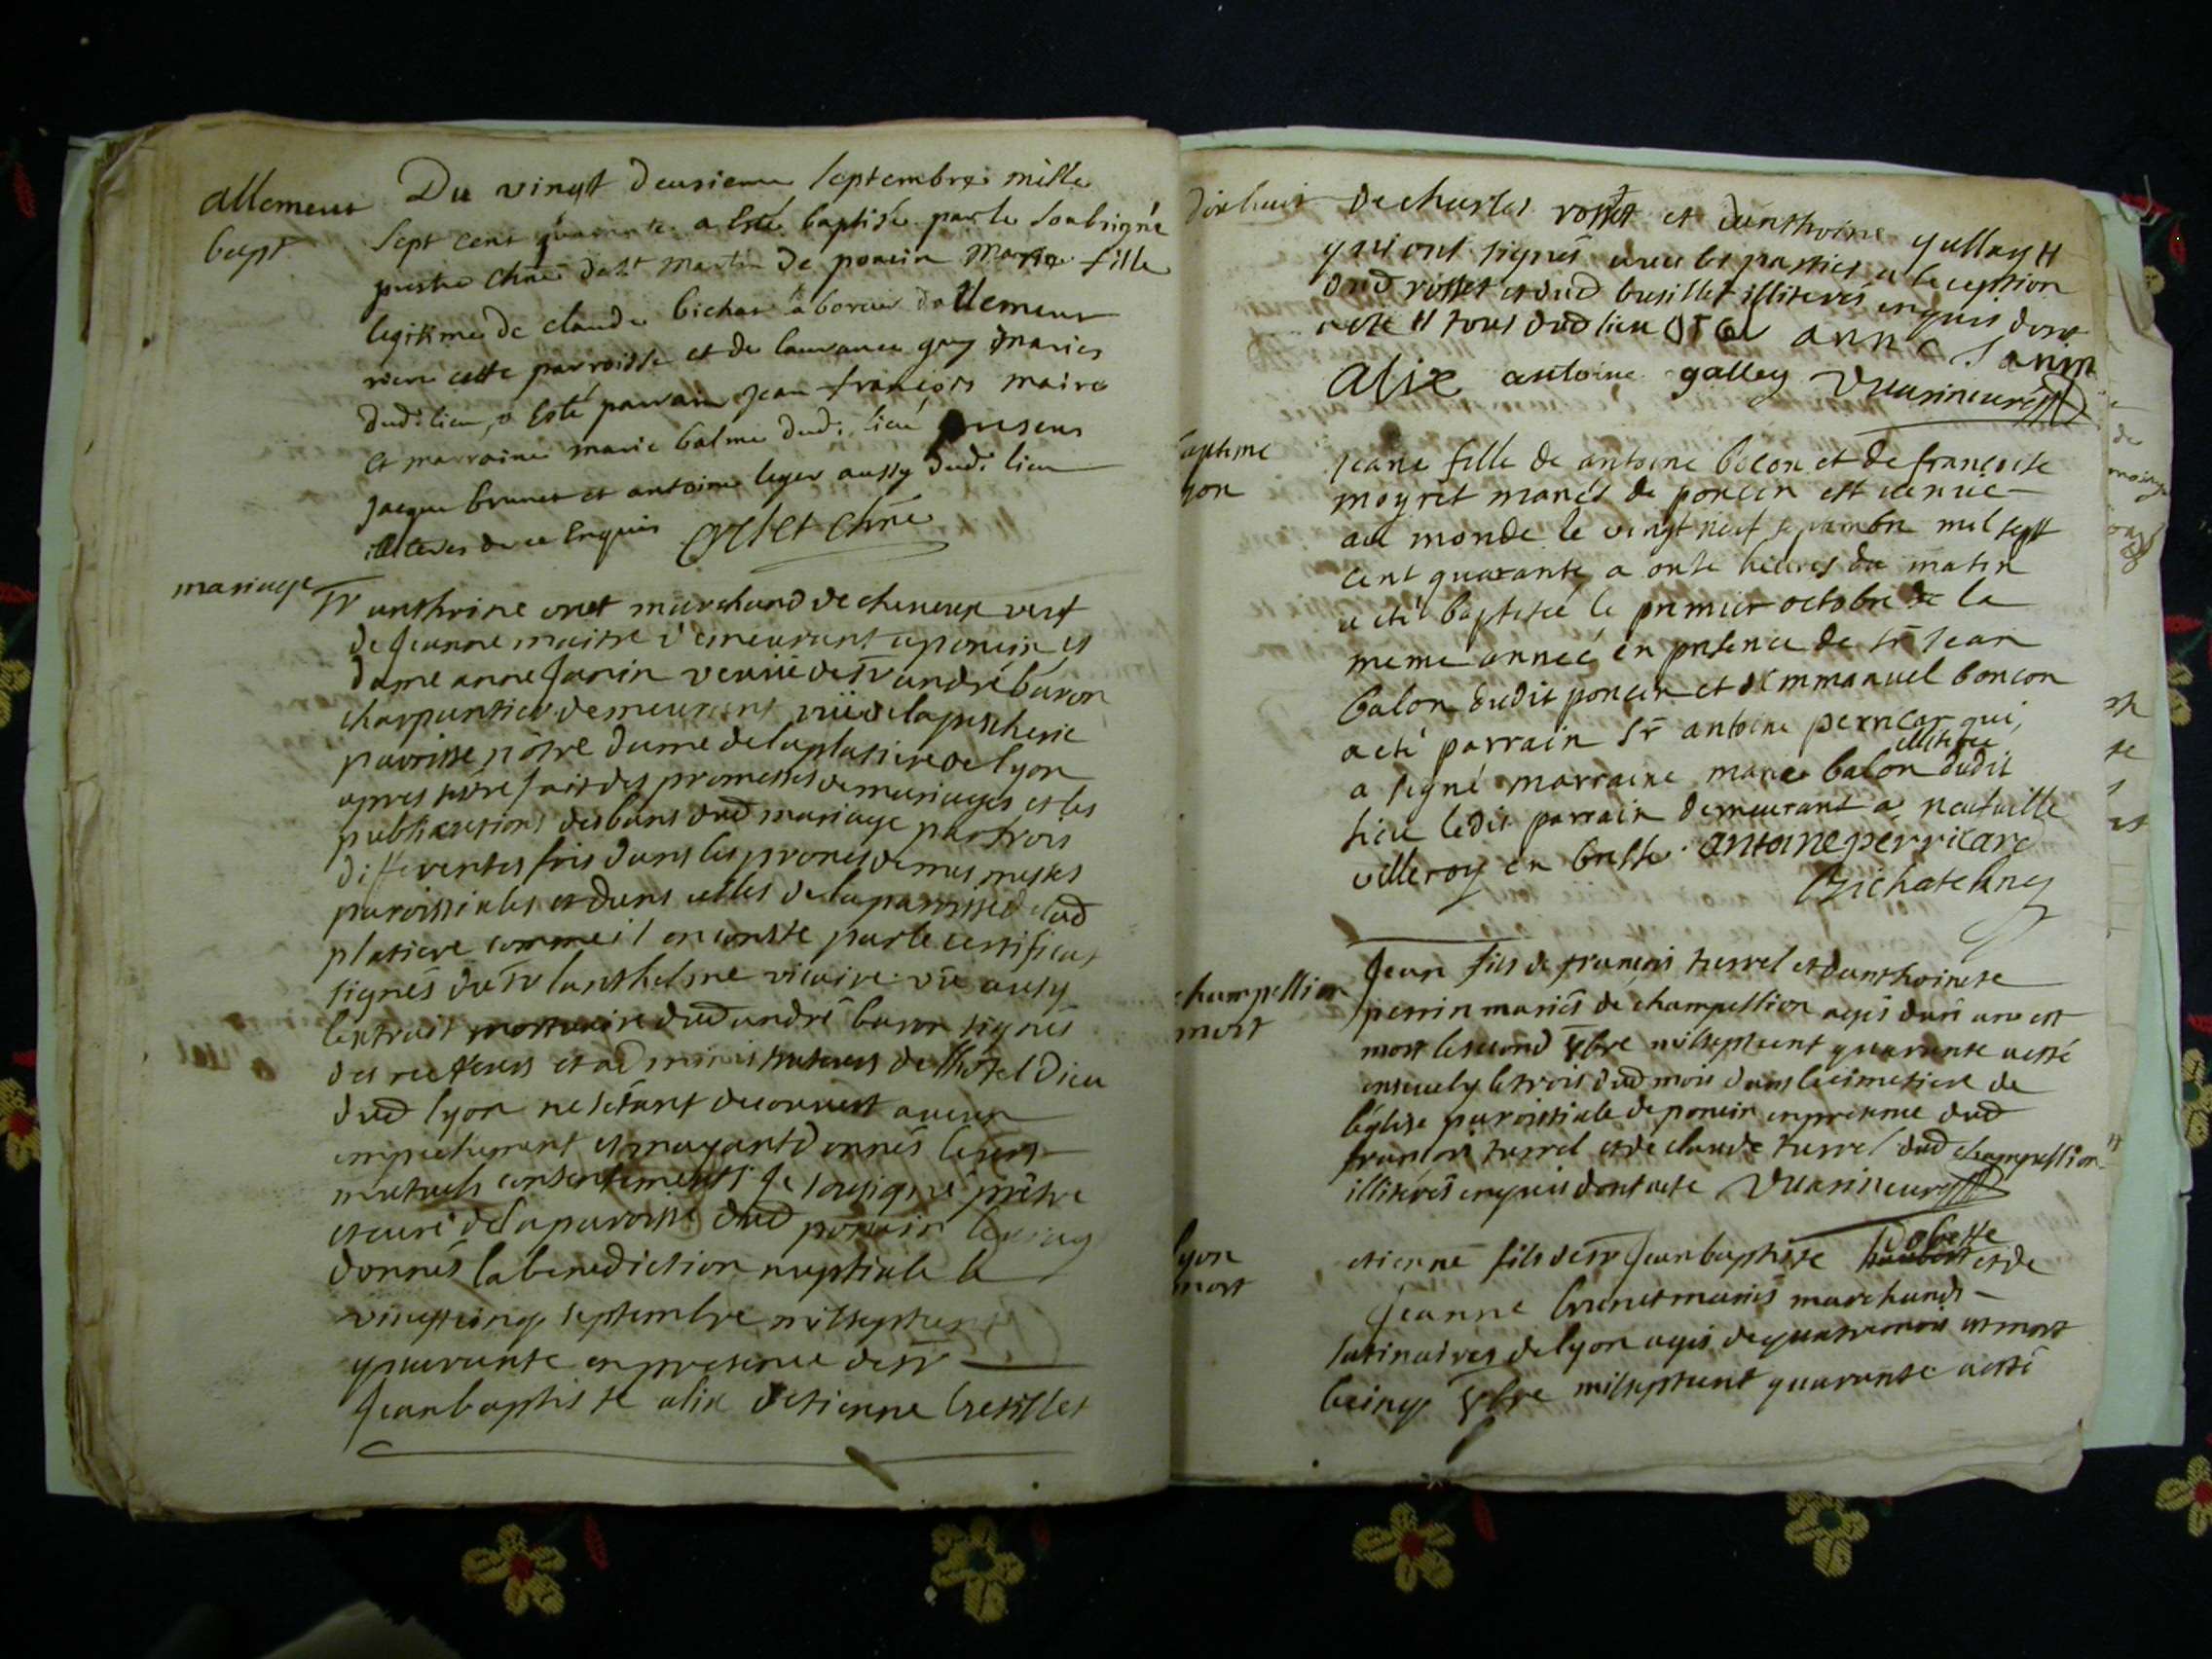 allement
bapt
Du vingt deusieme septembre mille
sept cent quarante a Esté baptisé par le soubsigné
prestre de st martin de poncin fille
legitime de claude bichat laboreur dallement
cette parroisse et de laurance guy mariés
dud. lieu, a Esté parrain jean françois maire
et marraine marie balme dud. lieu presens
jacque brunet et antoine leger aussy dud. lieu
de ce Enquis
mariage
sr anthoine oret marchand de veuf
de jeanne maitre demeurant a poncin et
dame anne janin veuüe de sr andré baron
charpentier demeurant rüe de la pescherie
paroisse nôtre dame de la platiere de lyon
apres sestre fait des promesses de mariages et les
publications des bans dud mariage par trois
differentes fois dans les prones de mes messes
paroissiales et dans celles de la paroisse de lad
platiere comme il en conste par le certificat
signés du sr lanthelme vicaire vû aussy
lextrait mortuaire dud andré baron signés
des recteurs et administrateurs de lhotel Dieu
dud lyon ne sétant decouvert aucun
empechement et mayant donnés leurs
mutuels consentements je sousigné prêtre
et curé de la paroisse dud poncin
donnés la benediction nuptiale le
vingt cinq septembre mil sept cent
quarante en presence de sr
jean baptiste alix detienne bresillet
de charles rosset et danthoine galley #
qui ont signés avec les parties a leception
dud rosset et dud bresillet illiterés enquis dont
acte # tous dud lieu oret anne janin
alix antoine galley
jeane fille de antoine bocon et de francoise
moyret mariés de poncin est venue
au monde le vingt neuf septambre mil sept
cent quarante a onse heures du matin
a eté baptisée le premier octobre de la
meme année en presence de sr jean
balon dudit poncin et demmanuel boncon
a eté parrain sr antoine perricar qui
a signé marraine marie balon illiteree dudit
lieu ledit parrain demeurant a neufuille
villeroy en bresse. antoine perricard
champellion
mort
jean fils de françois turrel et danthoinete
perrin mariés de champellion agés dun an est
mort le second 8bre mil sept cent quarante a esté
enseuely le trois dud mois dans le cimetiere de
léglise paroissiale de poncin en presence dud
françois turrel et de claude turrel dud champellion
illiterés enquis dont acte
lyon
mort
etienne fils de sr jean baptiste et de
jeanne brunet mariés marchands
satinaires de lyon agés de quatre mois est mort
le cinq 8bre mil sept cent quarante a esté